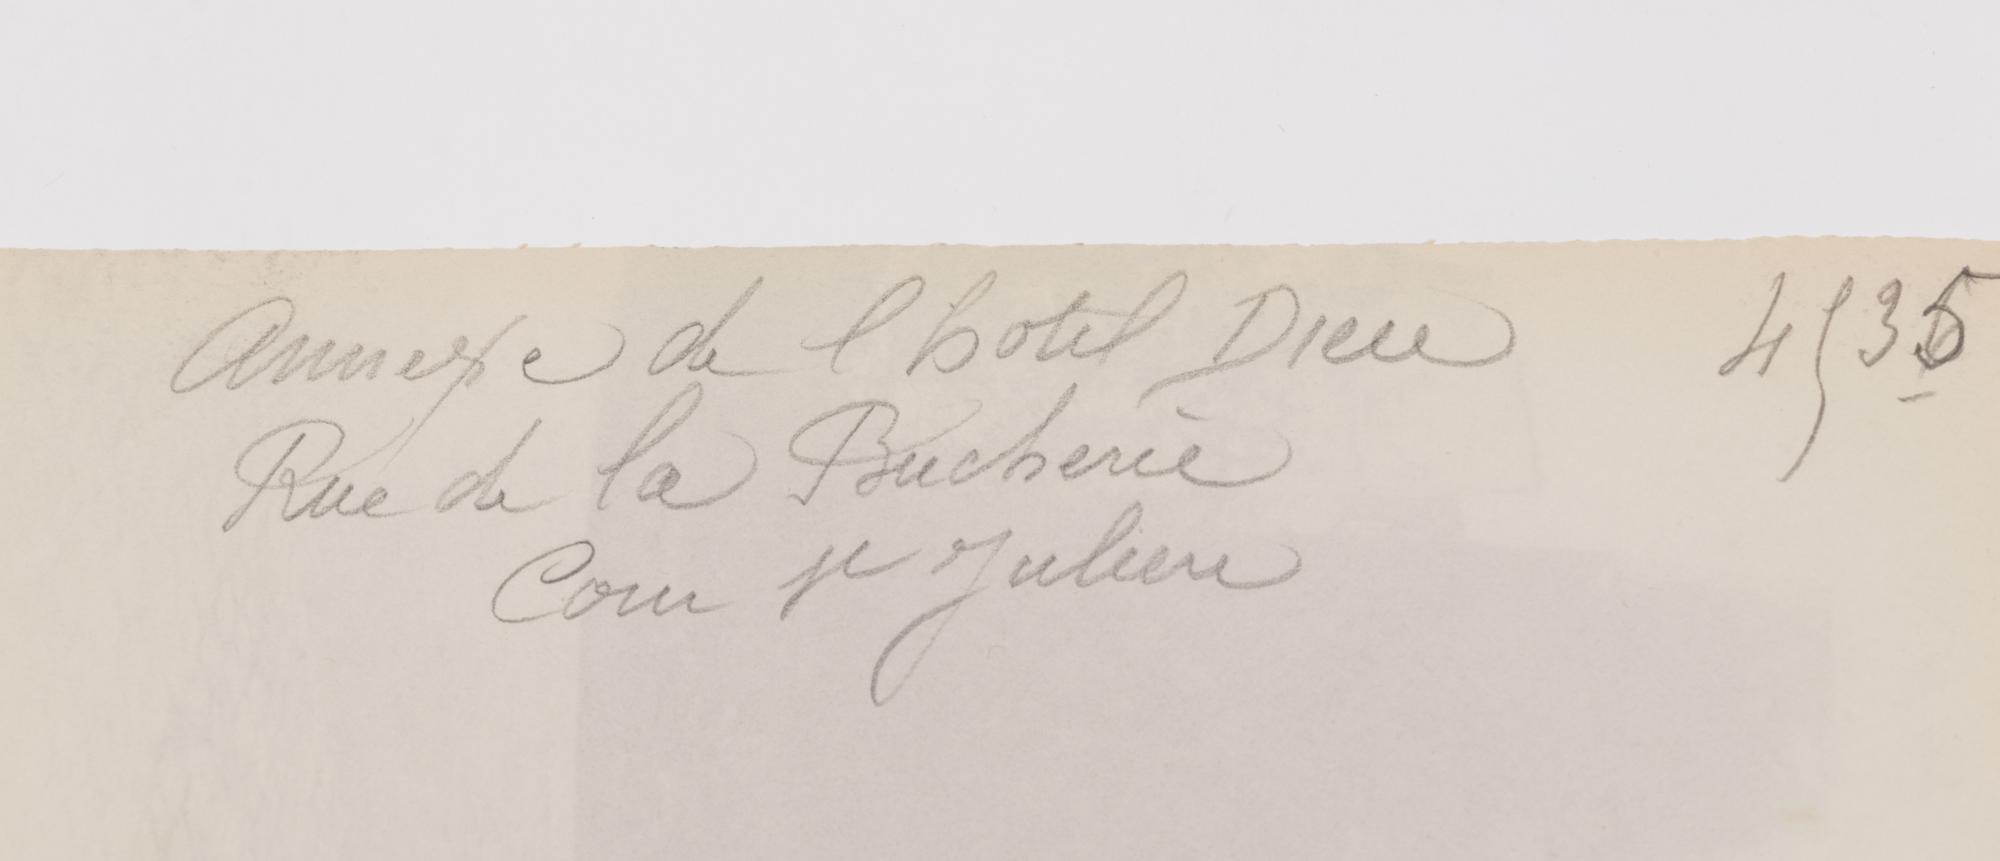 Annexe de l'hotel Dieu 4535
Rue de la Bucherie
Cour St Julien